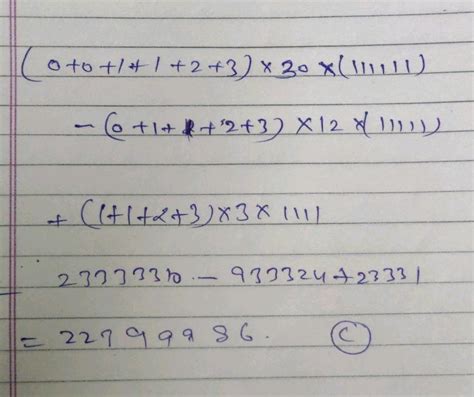 (0+0+1+1+2+3)×30×(111111)
-(0+1+1+2+3)×12×(11111)
+(1+1+2+3)×3×1111
23333310-933324+23331
=22799986. (C)